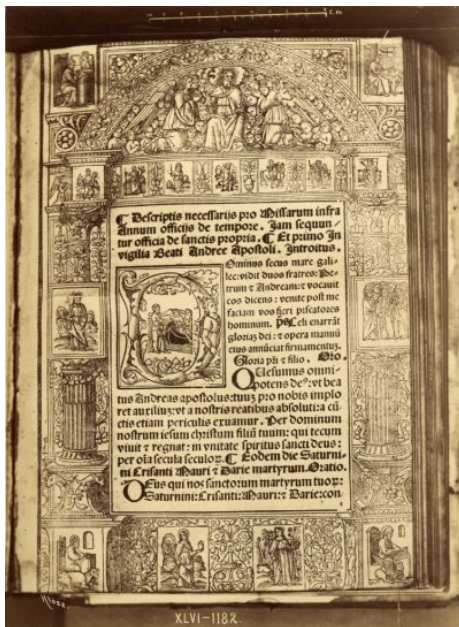 c m
¶ Descriptis necessarijs pro Missarum infra
Annum officijs de tempore. Jam sequun⸗
tur officia de sanctis propria. ¶ Et primo In
vigilia Beati Andree Apostoli. Introitus.
Dominus secus mare gali⸗
lee: vidit duos fratres: Pe⸗
trum ⁊ Andream: ⁊ vocauit
eos dicens: venite post me
faciam vos fieri piscatores
hominum. p̃s Celi enarrāt
gloriaȝ dei: ⁊ opera manuū
eius annūciat firmamentuȝ.
Gloria pr̄i ⁊ filio. Oro.
Quesumus omni⸗
potens deꝰ: vt bea
tus Andreas apostolus: tuuȝ pro nobis implo
ret auxiliuȝ: vt a nostris reatibus absoluti: a cū⸗
ctis etiam periculis exuamur. Per dominum
nostrum iesum christum filiū tuum: qui tecum
viuit ⁊ regnat: in vnitate spiritus sancti deus:
per oīa secula seculoꝝ. ¶ Eodem die Saturni⸗
ni Crisanti Mauri ⁊ Darie martyrum. Oratio.
Deus qui nos sanctorum martyrum tuoꝝ:
Saturnini: Crisanti: Mauri: ⁊ Darie: con⸗
XLVI-1182.